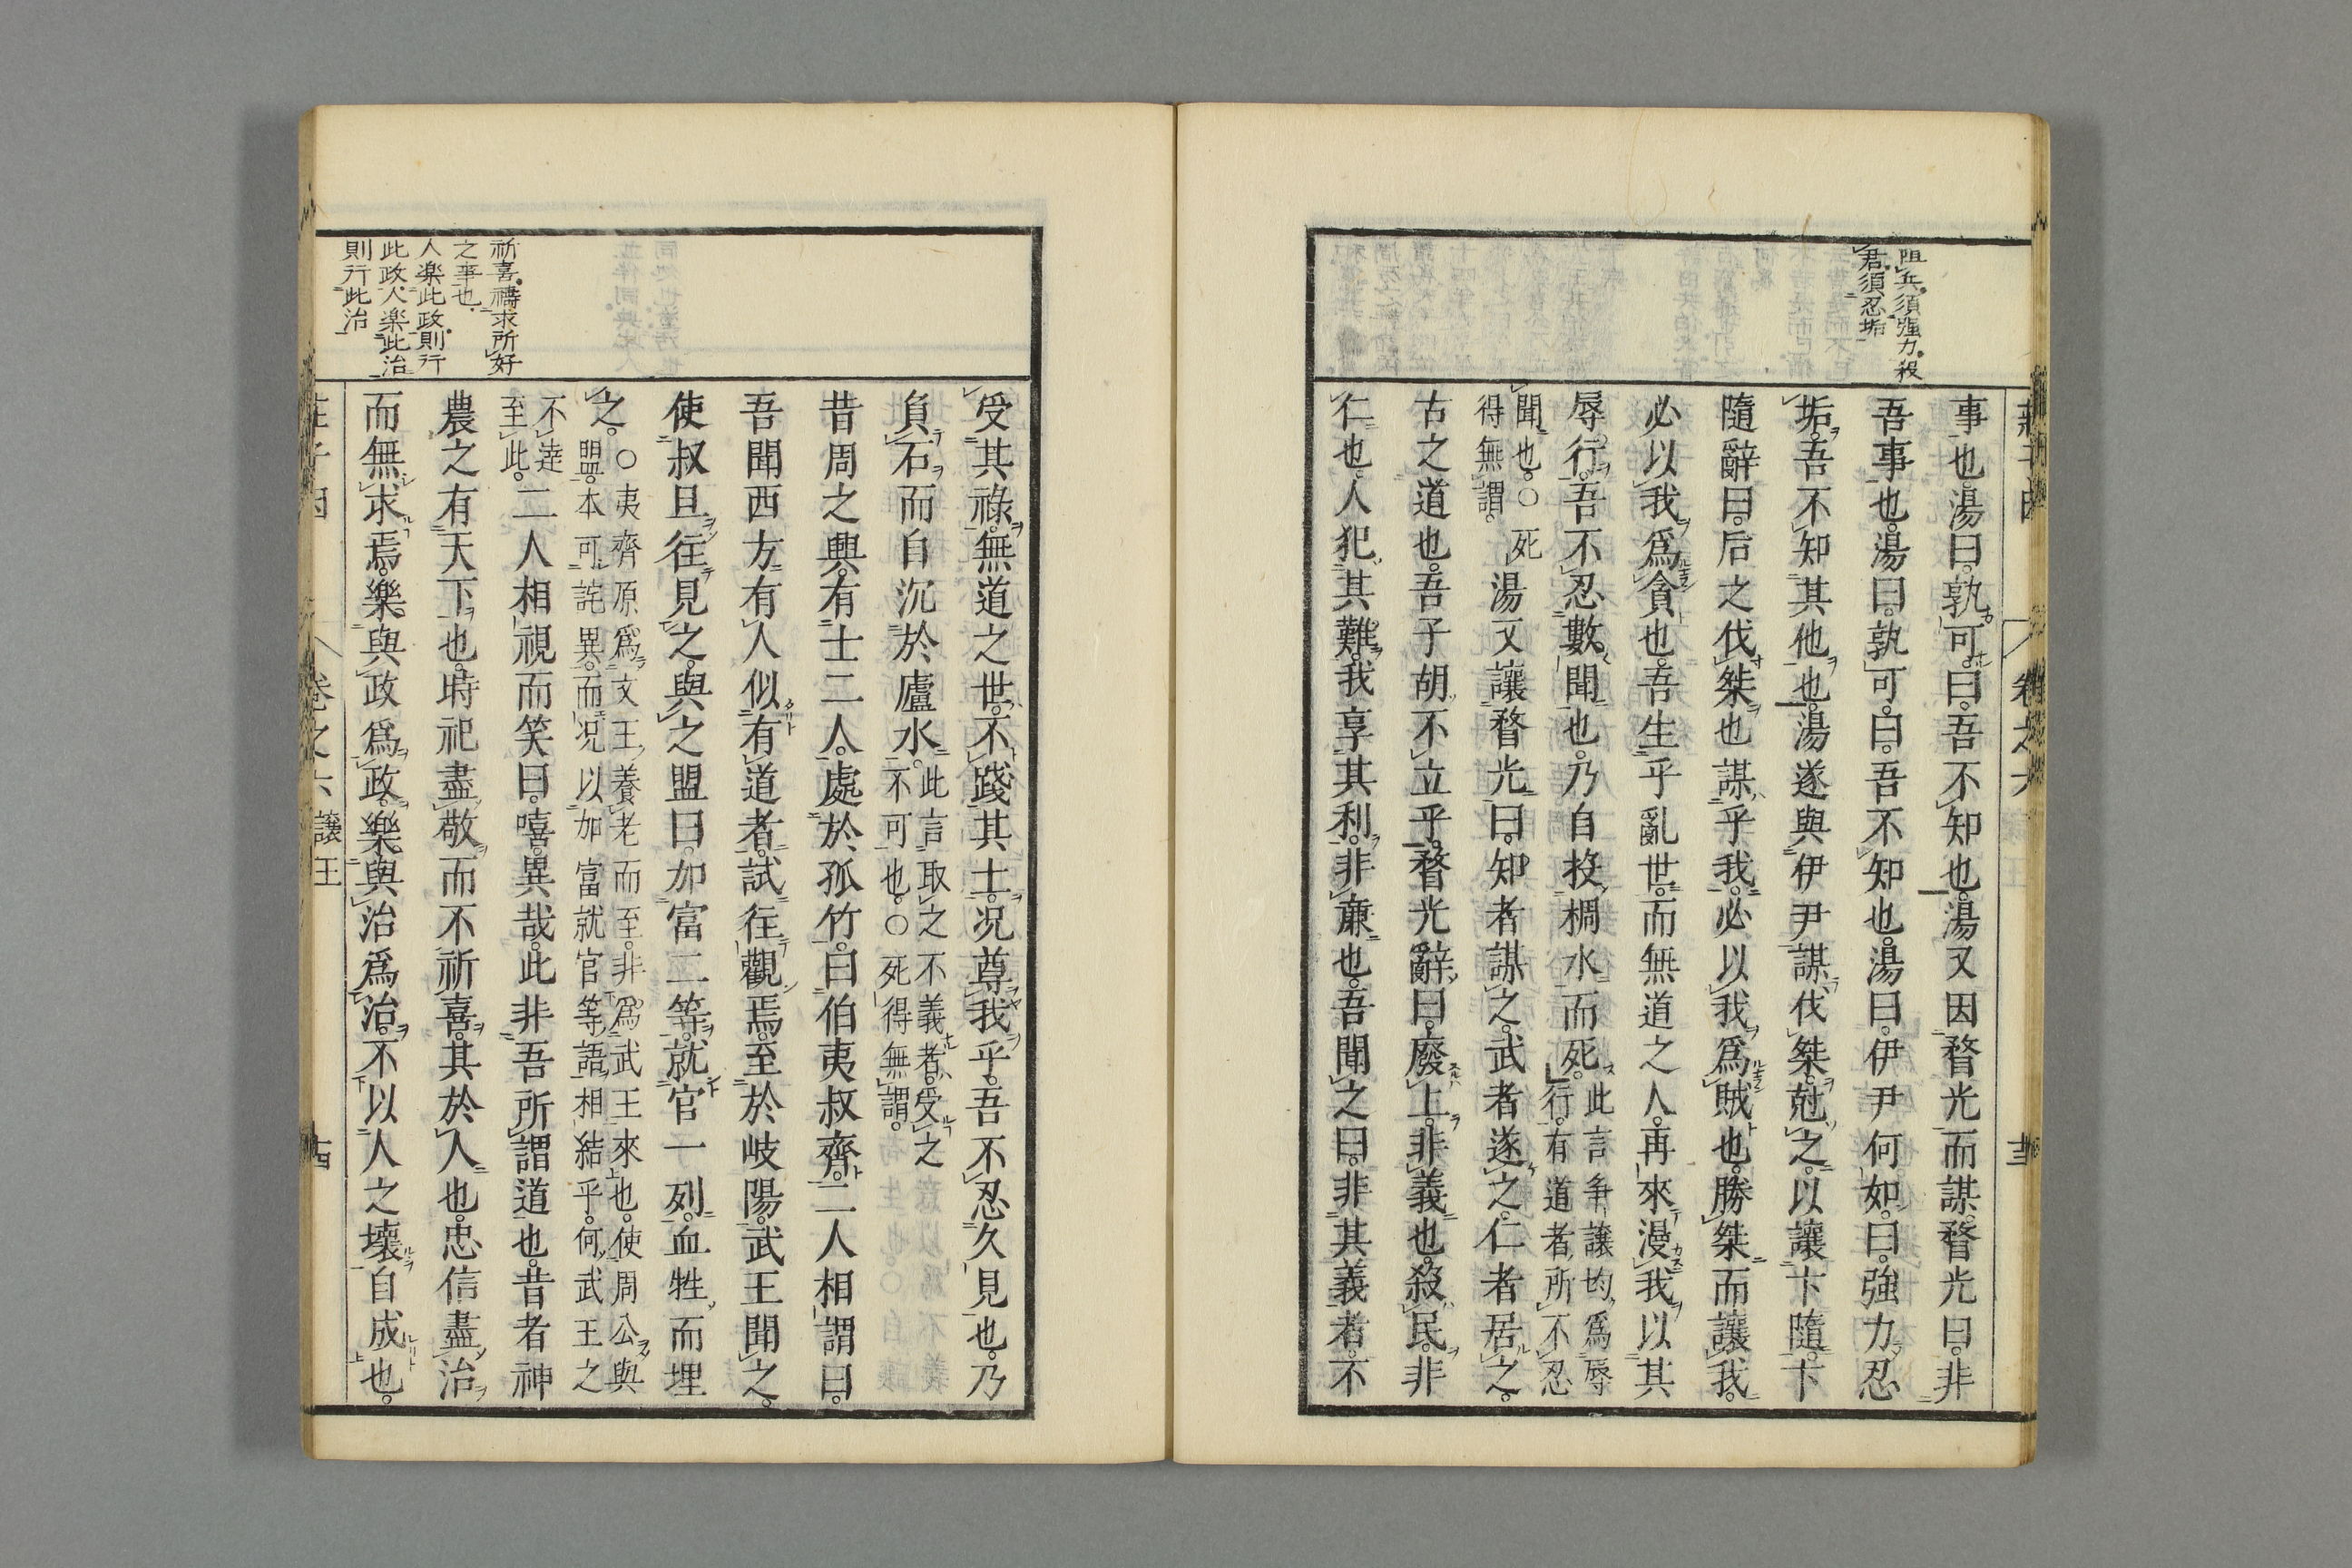 阻兵須强力殺
君須忍垢
事也湯曰孰可曰吾不知也湯又因瞀光而謀瞀光曰非
吾事也湯曰孰可曰吾不知也湯曰伊尹何如曰强力忍
垢吾不知其他也湯遂與伊尹謀伐桀尅之以讓卞隨卞
隨辭曰后之伐桀也謀乎我必以我爲賊也勝桀而讓我
必以我爲貪也吾生乎亂世而無道之人再來漫我以其
辱行吾不忍數聞也乃自投椆水而死此言爭讓均爲辱
行有道者所不忍
聞也○死
得無謂湯又讓瞀光曰知者謀之武者遂之仁者居之
古之道也吾子胡不立乎瞀光辭曰廢上非義也殺民非
仁也人犯其難我享其利非廉也吾聞之曰非其義者不
受其祿無道之世不踐其土况尊我乎吾不忍久見也乃
負石而自沉於廬水此言取之不義者受之
不可也○死得無謂
昔周之興有士二人處於孤竹曰伯夷叔齊二人相謂曰
吾聞西方有人似有道者試往觀焉至於岐陽武王聞之
使叔旦往見之與之盟曰加富二等就官一列血牲而埋
之○夷齊原爲文王養老而至非爲武王來也使周公與
盟本可詫異而况以加富就官等語相結乎何武王之
不達
至此二人相視而笑曰嘻異哉此非吾所謂道也昔者神
農之有天下也時祀盡敬而不祈喜其於人也忠信盡治
而無求焉樂與政爲政樂與治爲治不以人之壞自成也
祈喜禱求所好
之事也
人楽此政則行
此政人楽此治
則行此治
卷之六 讓王